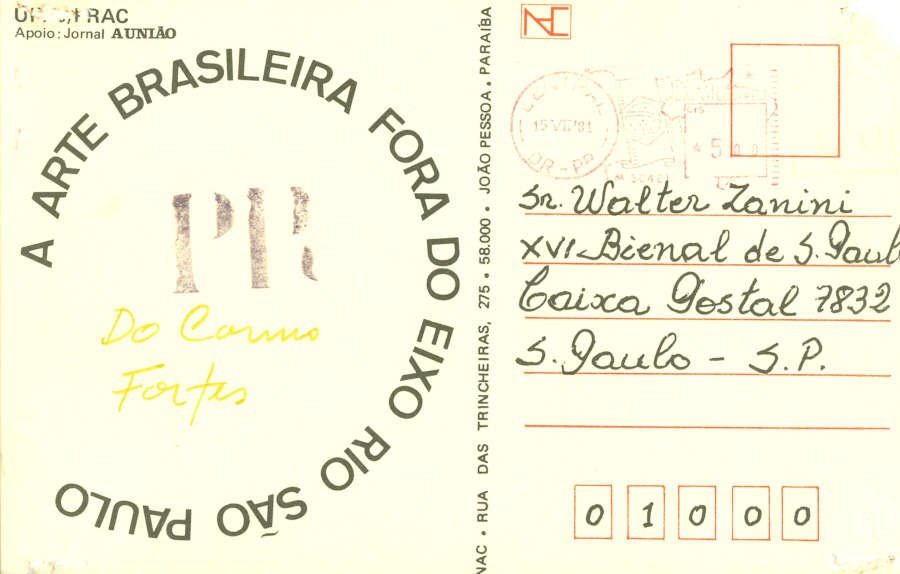 Apoio: Jornal A UNIÃO
A ARTE BRASILEIRA FORA DO EIXO RIO SÃO PAULO
PR
Do Carmo
Fortes
NAC • RUA DAS TRINCHEIRAS, 275 • 58.000 • JOÃO PESSOA • PARAÍBA
15 VII '81
DR-PR
5 00
Sr. Walter Zanini
XVI-Bienal de S. Paulo
Caixa Postal 7832
S. Paulo - S.P.
0 1 0 0 0